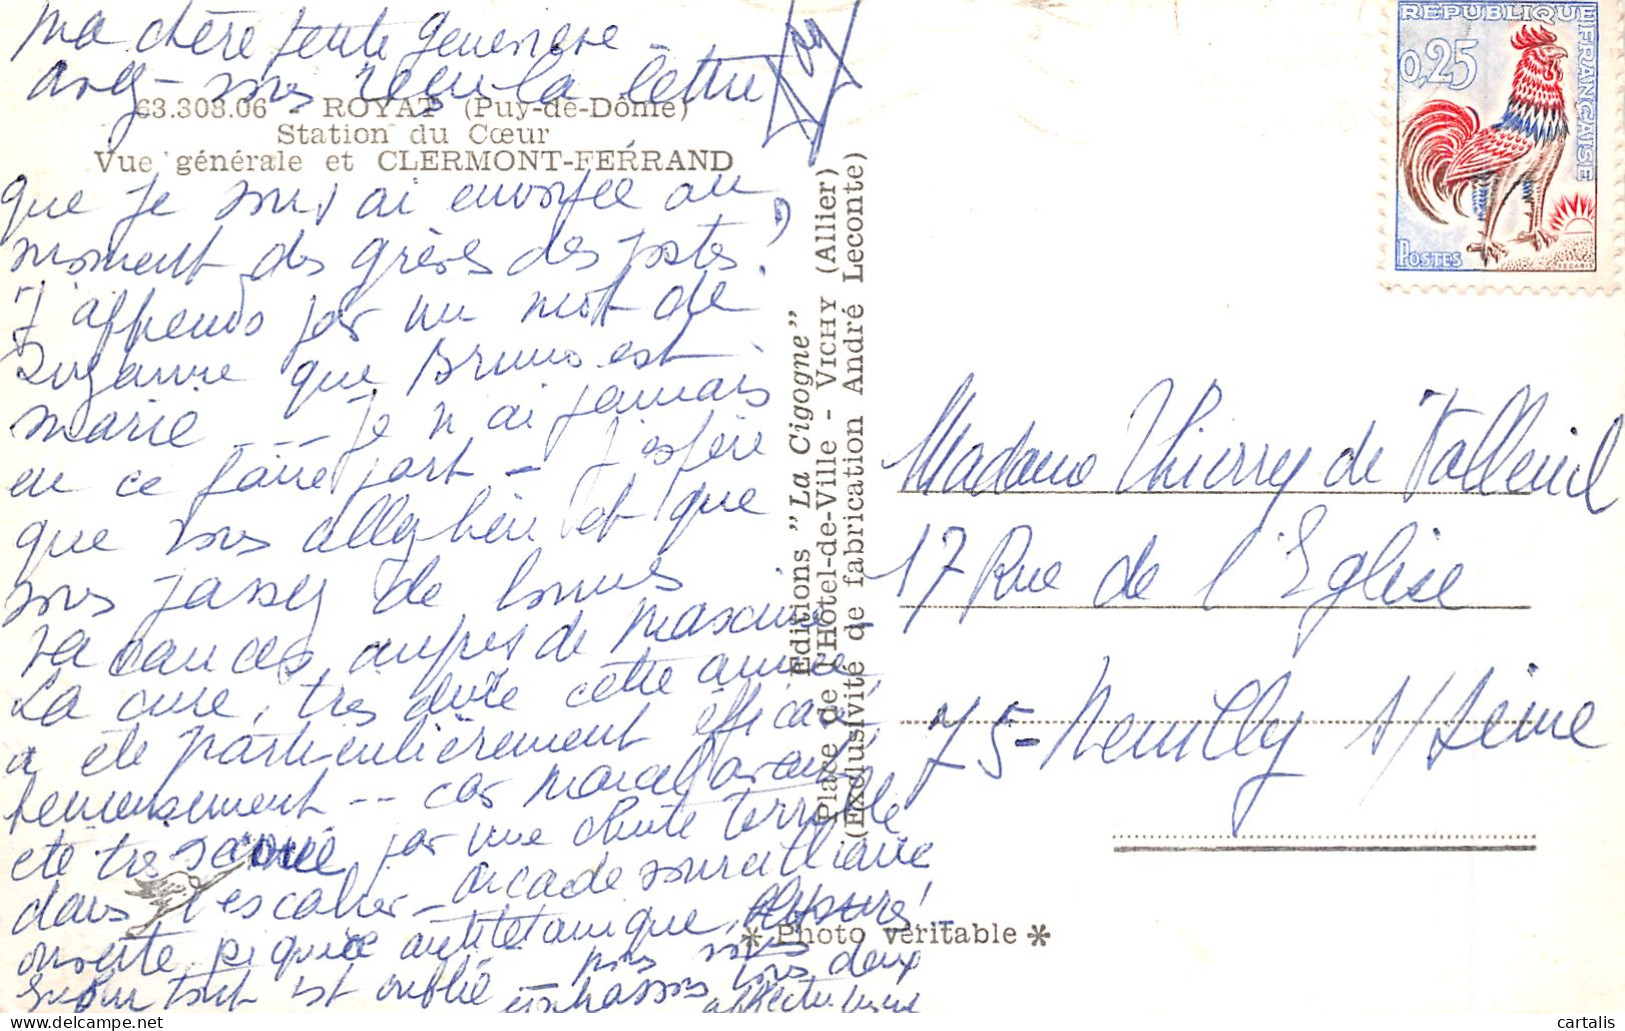 Ma chère petite Geneviève –
avez-vous reçu la lettre
63.308.06 - ROYAT (Puy-de-Dôme)
Station du Cœur
Vue générale et CLERMONT-FERRAND
que je vous ai envoyée au
moment des grèves des postes ?
J'apprends par un mot de
Suzanne que Bruno est
marié --- Je n'ai jamais
eu ce faire part – J'espère
que vous allez bien et que
vous passez de bonnes
vacances auprès de Maxime
La cure, très dure cette année
a été particulièrement efficace
heureusement -- car Marcel avait
été très secoué par une chute terrible
dans l'escalier – arcade sourcilliaire
ouverte, piqûre antitétanique,
tout est oublié – nous vous
embrassons tous deux
affectueusement
Editions "La Cigogne"
Place de l'Hôtel-de-Ville - VICHY (Allier)
(Exclusivité de fabrication André Leconte)
* Photo véritable *
REPUBLIQUE FRANÇAISE
0,25
POSTES
DECARIS
Madame Thierry de Valleuil
17 Rue de l'Eglise
75-Neuilly s/Seine
cartalis